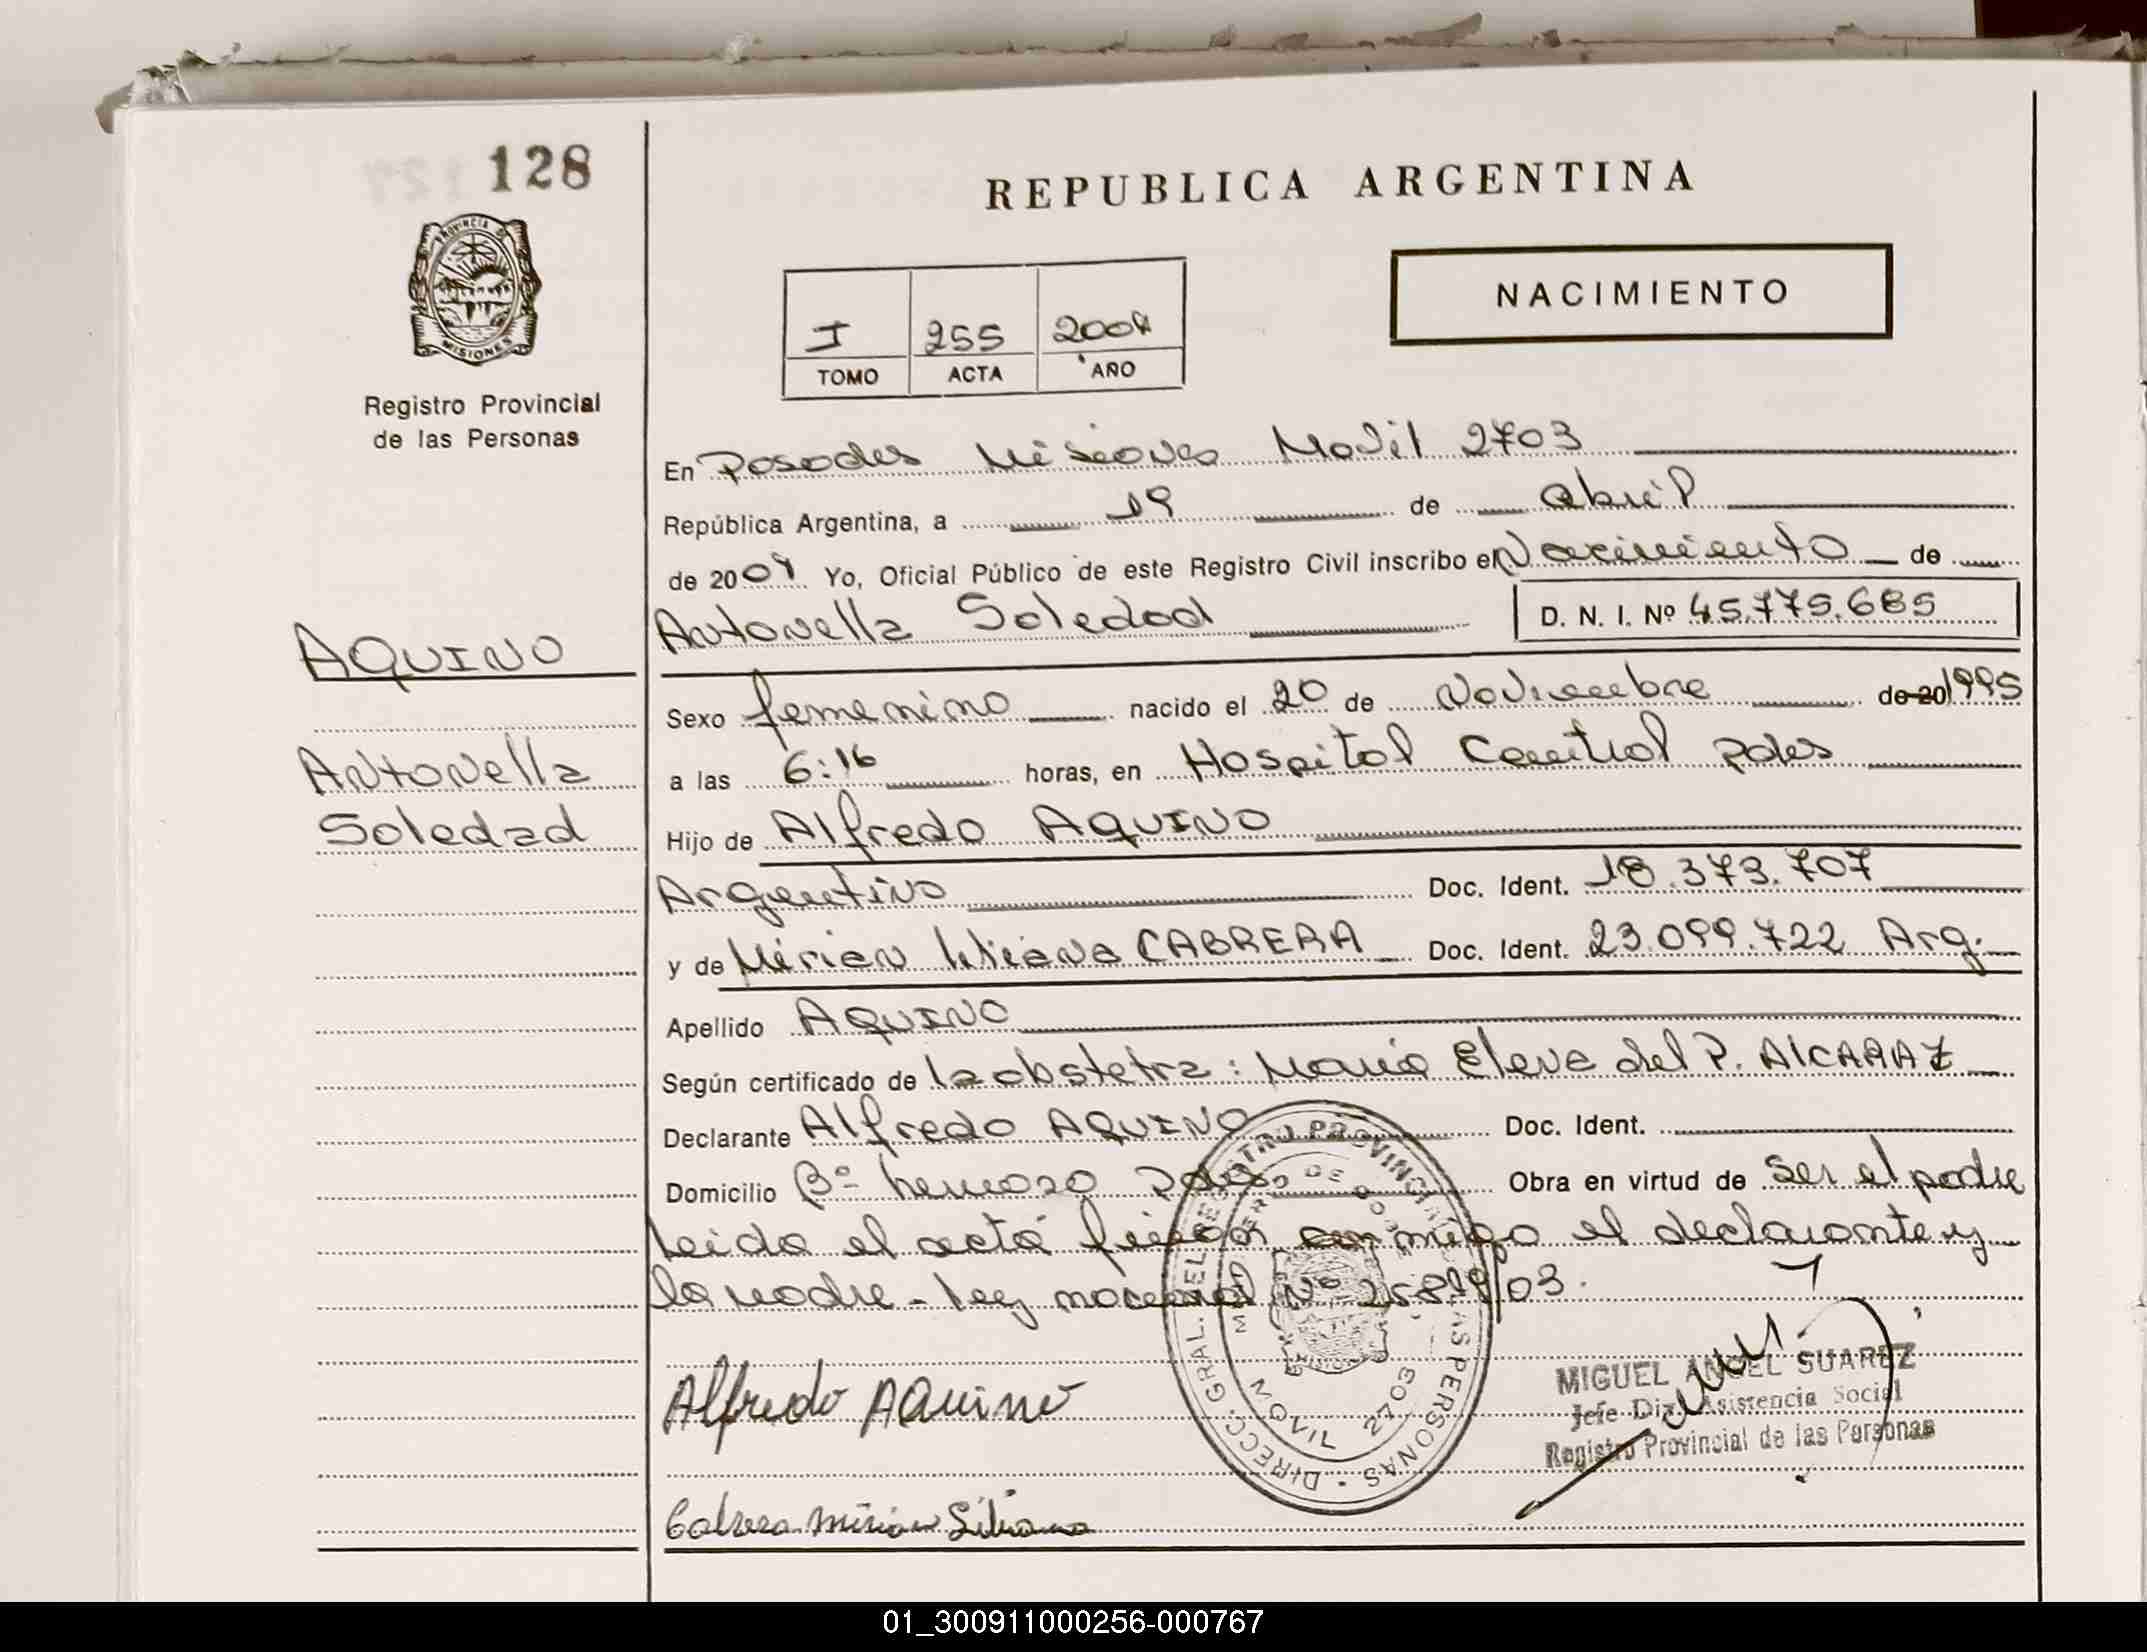 128
REPUBLICA ARGENTINA
PROVINCIA DE
MISIONES
Registro Provincial
de las Personas
NACIMIENTO
I 255 2004
TOMO ACTA AÑO
En Posadas Misiones Movil 2703
República Argentina, a 19 de abril
de 2004 Yo, Oficial Público de este Registro Civil inscribo el Nacimiento de
Antonella Soledad D. N. I. Nº 45.775.685
AQUINO
Sexo femenino nacido el 20 de Noviembre de 20 1995
Antonella
Soledad
a las 6:16 horas, en Hospital Central pdas
Hijo de Alfredo AQUINO
Argentino Doc. Ident. 18.373.707
y de Mirian CABRERA Doc. Ident. 23.099.722 Arg.
Apellido AQUINO
Según certificado de la obstetra: María Elena del P. ALCARAZ
Declarante Alfredo AQUINO Doc. Ident.
Domicilio Bº hermoso Pdas Obra en virtud de ser el padre
leida el acta firman conmigo el declarante y
la madre - ley nacional Nº 25819/03.
DIRECC. GRAL. DEL REGISTRO PROVINCIAL DE LAS PERSONAS
MOVIL 2703
Alfredo AQuino
MIGUEL ANGEL SUAREZ
Jefe Div. Asistencia Social
Registro Provincial de las Personas
Cabrera Mirian Liliana
01_300911000256-000767